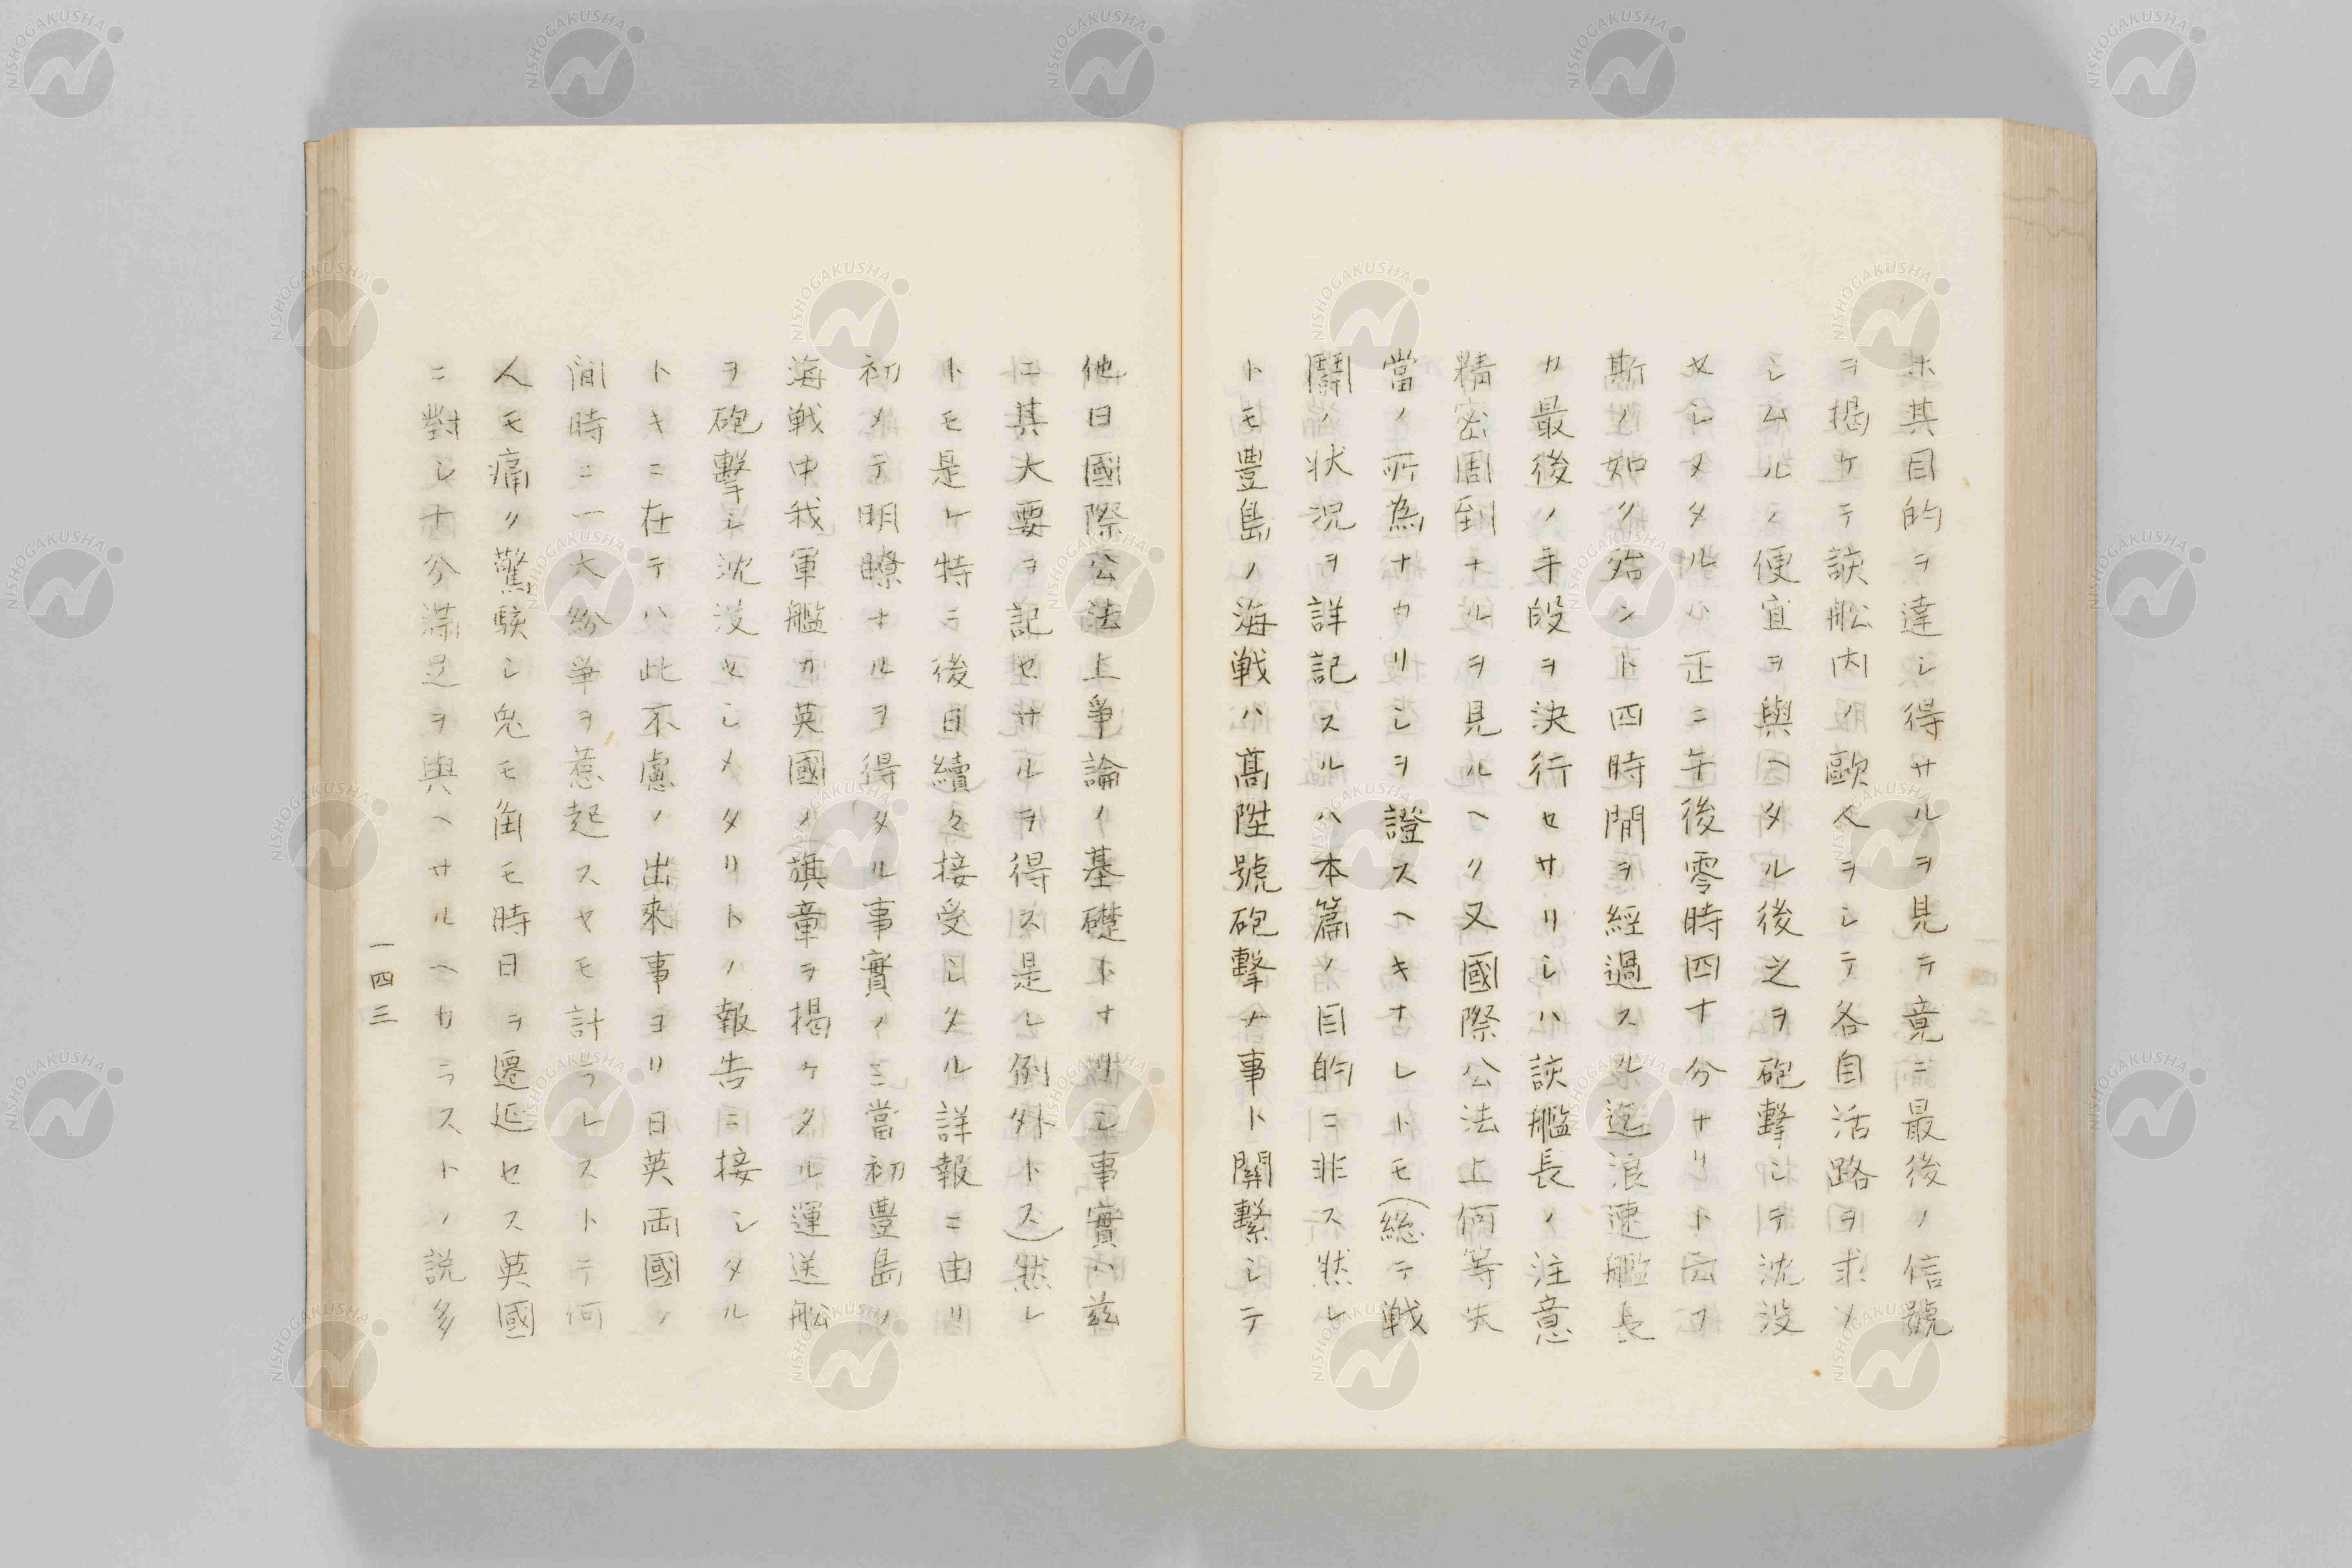 ホ其目的ヲ達シ得サルヲ見テ竟ニ最後ノ信號
ヲ揚ケテ該舩内ノ歐人ヲシテ各自活路ヲ求メ
シムルノ便宜ヲ與ヘタル後之ヲ砲擊シテ沈没
セシメタルハ正ニ午後零時四十分ナリト云フ
斯ノ如ク殆ント四時間ヲ經過スル迄浪速艦長
カ最後ノ手段ヲ決行セサリシハ該艦長ノ注意
精密周到ナルヲ見ルヘク又國際公法上何等失
當ノ所為ナカリシヲ證スヘキナレトモ(総テ戦
鬪ノ状況ヲ詳記スルハ本篇ノ目的ニ非ス然レ
トモ豊島ノ海戦ハ髙陞號砲擊ノ事ト關繫シテ
他日國際公法上爭論ノ基礎トナリシ事實ハ茲
ニ其大要ヲ記セサルヲ得ス是レ例外トス)然レ
トモ是レ特ニ後日續々接受シタル詳報ニ由リ
初メテ明瞭ナルヲ得タル事實ノミ當初豊島ノ
海戦中我軍艦カ英國ノ旗章ヲ揭ケタル運送舩
ヲ砲擊シ沈没セシメタリトノ報告ニ接シタル
トキニ在テハ此不慮ノ出來事ヨリ日英両國ノ
間時ニ一大紛爭ヲ惹起スヤモ計ラレストテ何
人モ痛ク驚駭シ兎モ角モ時日ヲ遷延セス英國
ニ對シ十分満足ヲ與ヘサルヘカラストノ説多
一四三
NISHOGAKUSHA